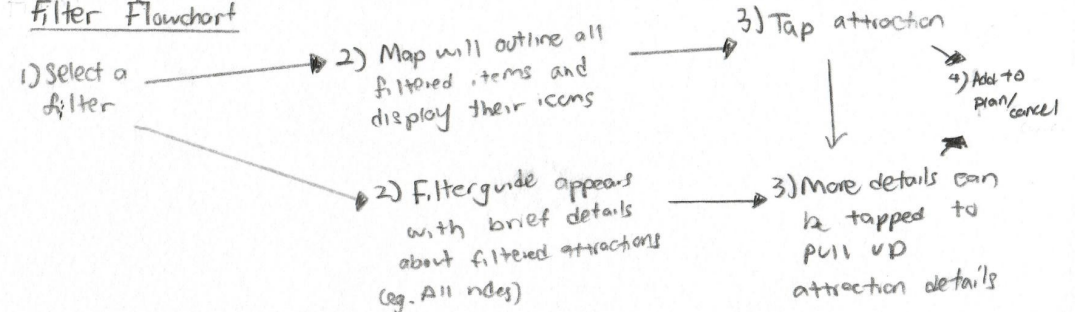 Filter Flowchart
1) Select a
filter
2) Map will outline all
filtered items and
display their icons
3) Tap attraction
4) Add to
plan/
cancel
2) Filterguide appears
with brief details
about filtered attractions
(eg. All rides)
3) More details can
be tapped to
pull up
attraction details